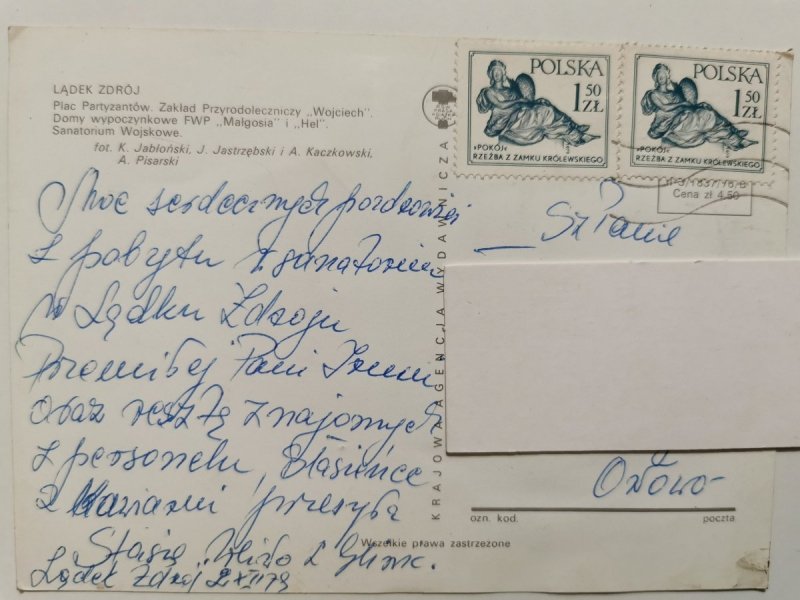 LĄDEK ZDRÓJ
Plac Partyzantów. Zakład Przyrodoleczniczy „Wojciech".
Domy wypoczynkowe FWP „Małgosia" i „Hel".
Sanatorium Wojskowe.
fot. K. Jabłoński, J. Jastrzębski i A. Kaczkowski,
A. Pisarski
Moc serdecznych pozdrowień
z pobytu z sanatorium
w Lądku Zdroju
Przemiłej Pani
oraz resztę znajomych
z personelu,
przesyła
Stasia
Lądek Zdrój
KRAJOWA AGENCJA WYDAWNICZA
POLSKA
1 50 ZŁ
»POKÓJ«
RZEŹBA Z ZAMKU KRÓLEWSKIEGO
POLSKA
1 50 ZŁ
»POKÓJ«
RZEŹBA Z ZAMKU KRÓLEWSKIEGO
Cena zł 4.50
Sz Panie
ozn. kod. poczta
Wszelkie prawa zastrzeżone